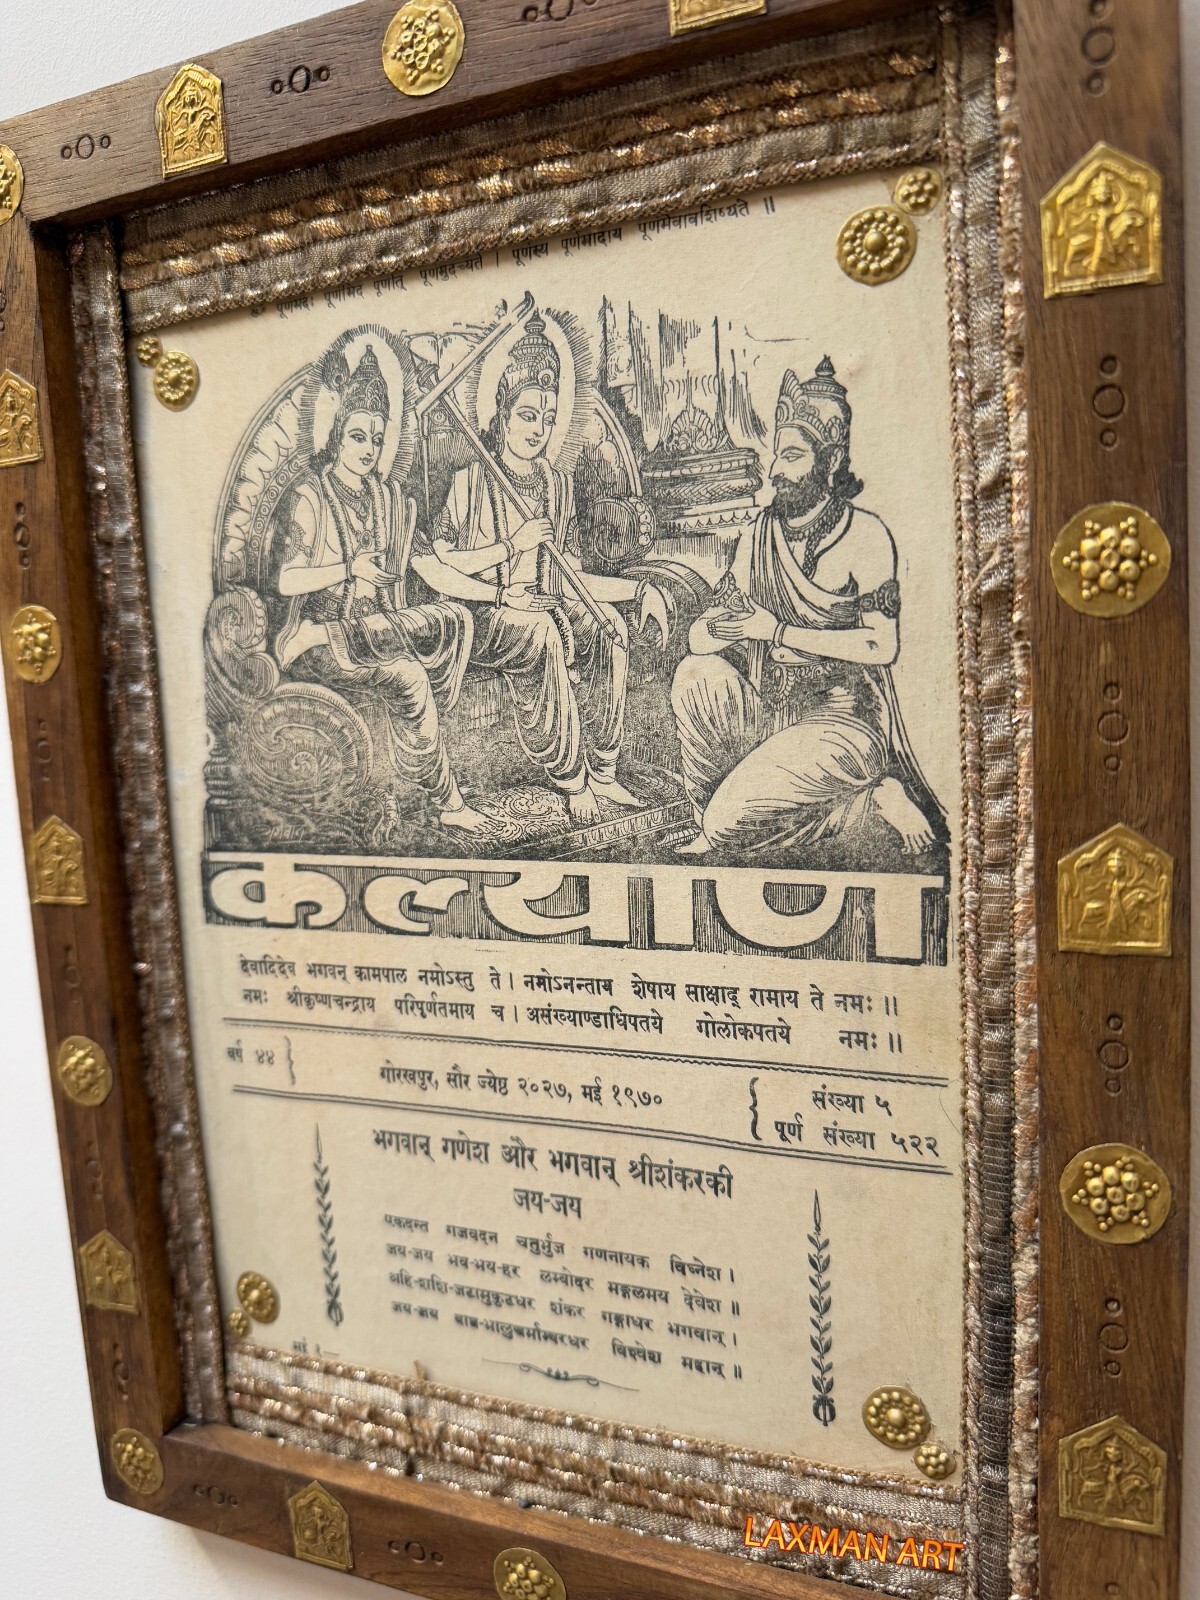 पूर्णमदः पूर्णमिदं पूर्णात् पूर्णमुदच्यते । पूर्णस्य पूर्णमादाय पूर्णमेवावशिष्यते ॥
कल्याण
देवादिदेव भगवन् कामपाल नमोऽस्तु ते । नमोऽनन्ताय शेषाय साक्षाद् रामाय ते नमः ॥
नमः श्रीकृष्णचन्द्राय परिपूर्णतमाय च । असंख्याण्डाधिपतये गोलोकपतये नमः ॥
वर्ष ४४
गोरखपुर, सौर ज्येष्ठ २०२७, मई १९७०
संख्या ५
पूर्ण संख्या ५२२
भगवान् गणेश और भगवान् श्रीशंकरकी
जय-जय
एकदन्त गजवदन चतुर्भुज गणनायक विघ्नेश ।
जय-जय भव-भय-हर लम्बोदर मङ्गलमय देवेश ॥
अहि-शशि-जटामुकुटधर शंकर गङ्गाधर भगवान् ।
जय-जय बाघ-भालुचर्माम्बरधर विश्वेश महान् ॥
मई १—
LAXMAN ART